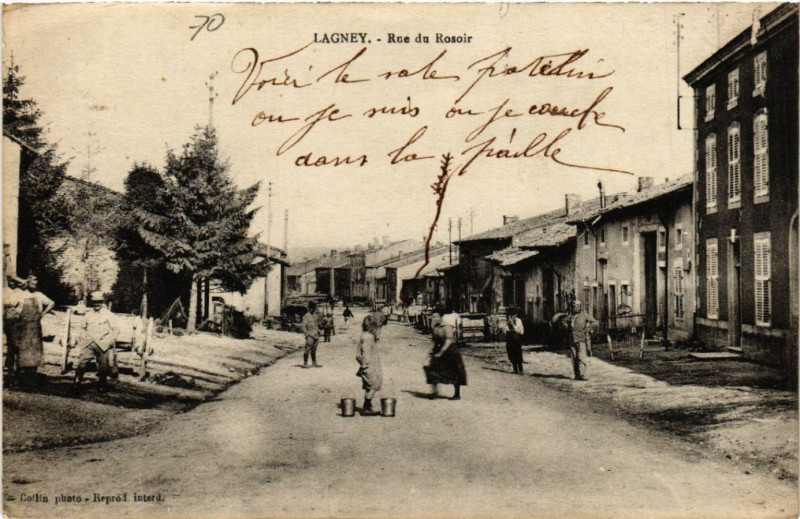 70
LAGNEY. - Rue du Rosoir
Voici le sale patelin
ou je suis ou je couche
dans la paille
Collin photo - Reprod. interd.